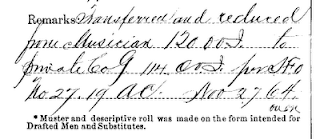 Remarks Transferred and reduced
from Musician 120.00 I. to
private Co G 114. O.V.I. per S.F.O
No 27. 19 A.C. Nov 27 64.
over
* Muster and descriptive roll was made on the form intended for
Drafted Men and Substitutes.